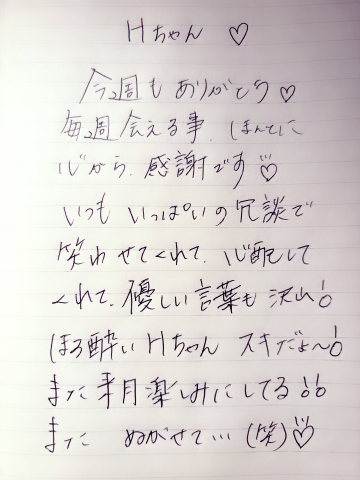 Hちゃん ♡
今週も ありがとう♡
毎週会える事、ほんとに
心から、感謝です♡
いつも いっぱいの冗談で
笑わせてくれて、心配して
くれて、優しい言葉も 沢山!
ほろ酔い Hちゃん スキだよ〜!
また 来月楽しみにしてる!!
また ぬがせて…(笑)♡